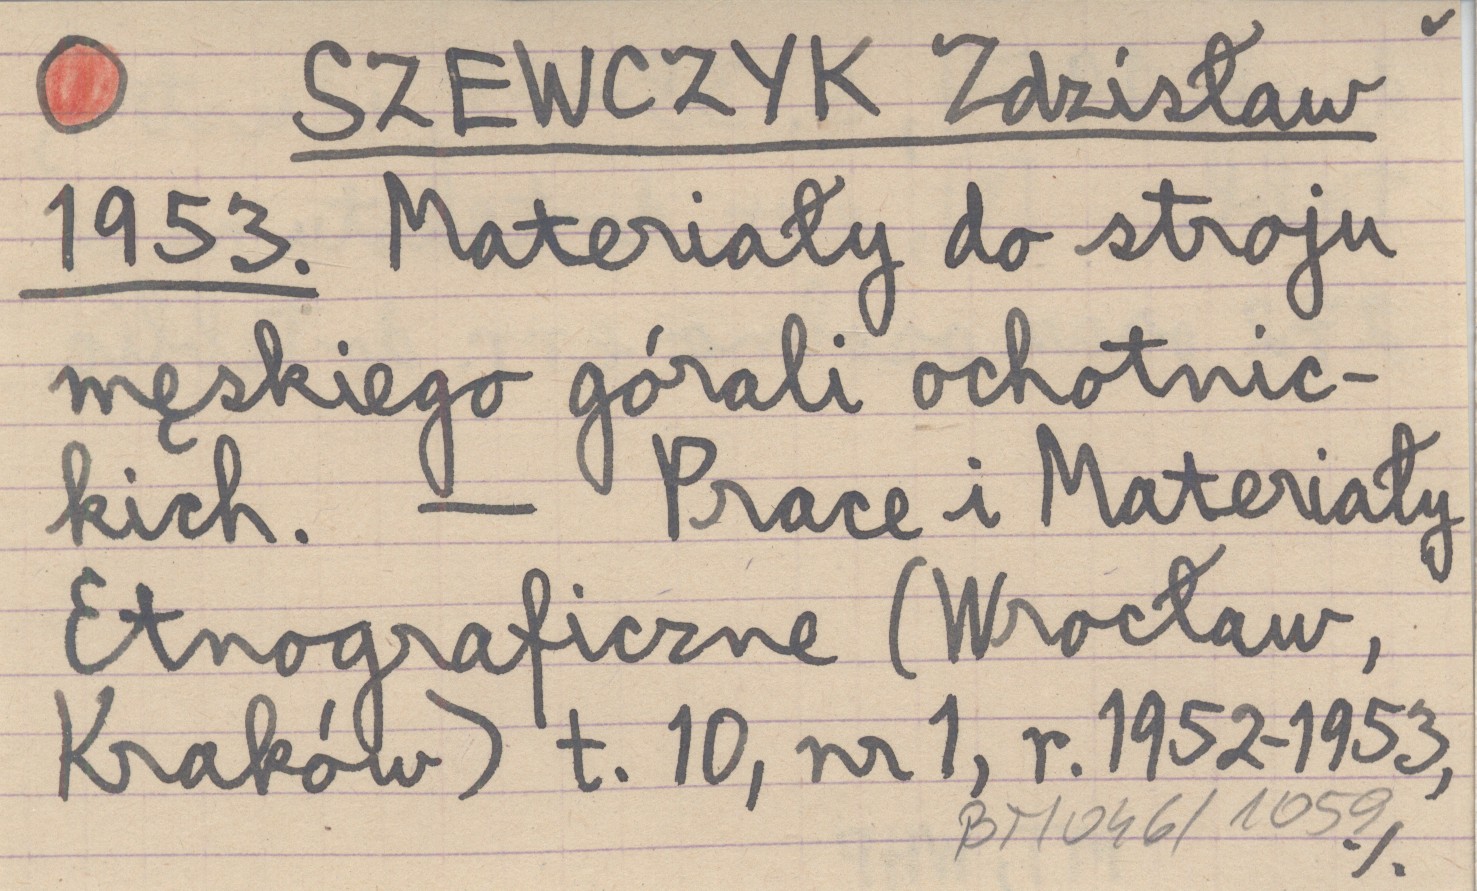 SZEWCZYK Zdzisław
1953. Materiały do stroju
męskiego górali ochotnic-
kich. — Prace i Materiały
Etnograficzne (Wrocław,
Kraków) t. 10, nr 1, r. 1952-1953,
BM/046/1059
./.